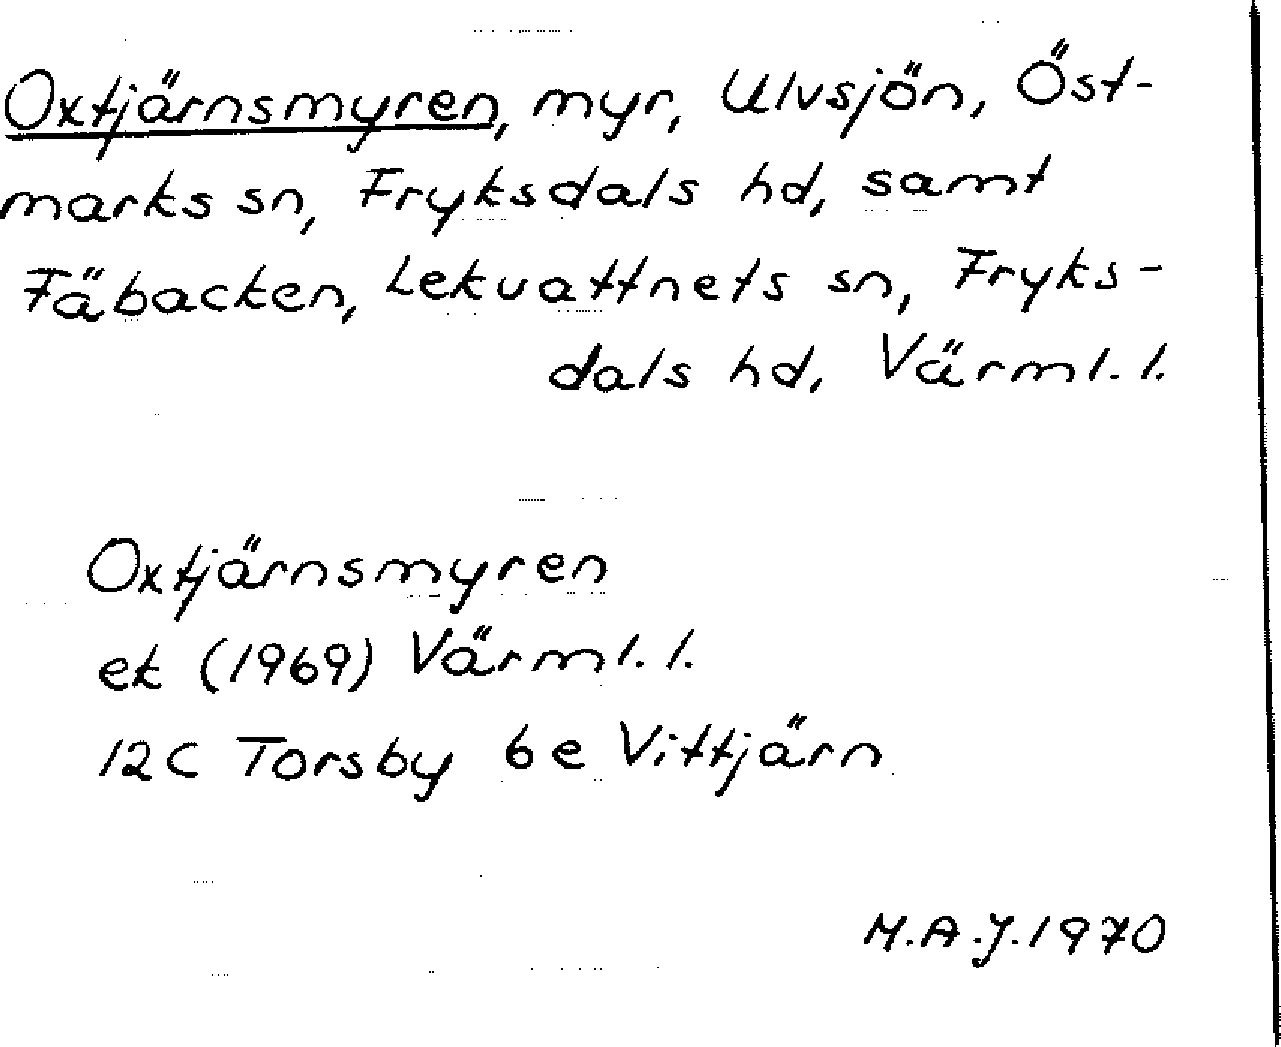 Oxtjärnsmyren, myr, Ulvsjön, Öst-
marks sn, Fryksdals hd, samt
Fäbacken, Lekvattnets sn, Fryks-
dals hd, Värml. l.
Oxtjärnsmyren
ek (1969) Värml. l.
12C Torsby 6e Vittjärn
M.A.J. 1970